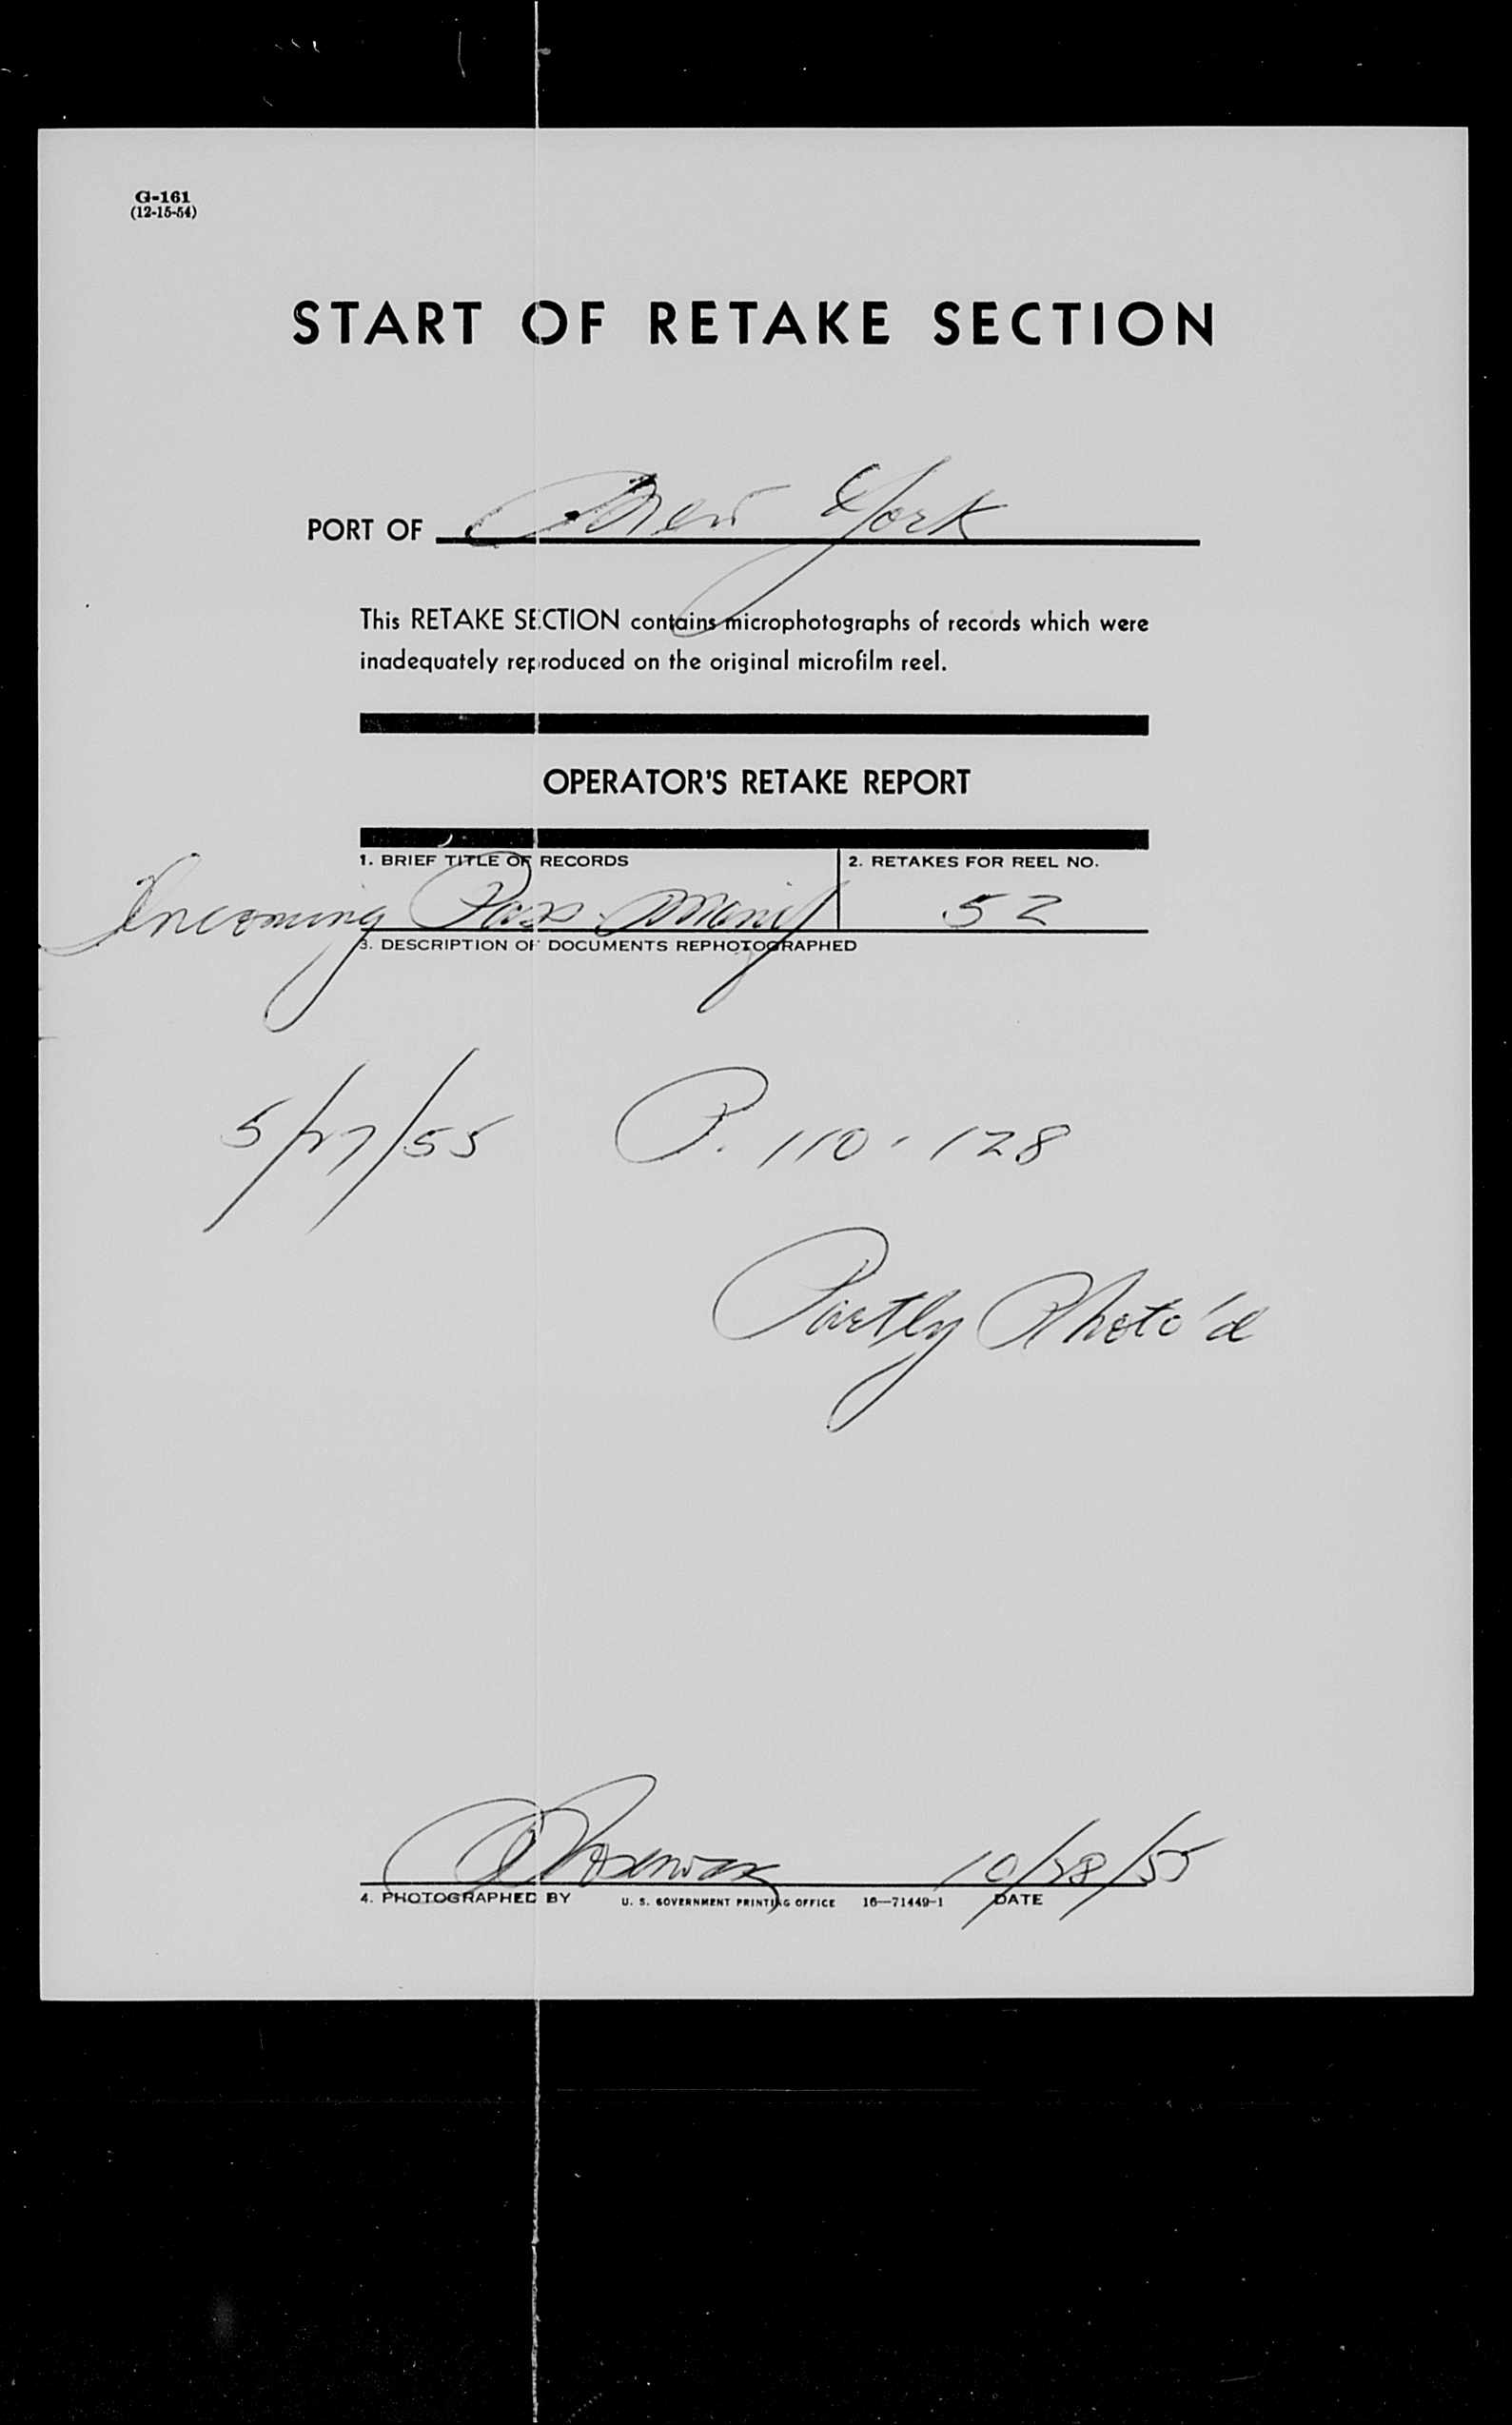 G-161
(12-15-54)
START OF RETAKE SECTION
PORT OF New York
This RETAKE SECTION contains microphotographs of records which were
inadequately reproduced on the original microfilm reel.
OPERATOR'S RETAKE REPORT
1. BRIEF TITLE OF RECORDS 2. RETAKES FOR REEL NO.
Incoming Pass. Manif 52
3. DESCRIPTION OF DOCUMENTS REPHOTOGRAPHED
5/27/55 P. 110-128
Partly Photo'd
10/28/55
4. PHOTOGRAPHED BY U. S. GOVERNMENT PRINTING OFFICE 16—71449-1 DATE